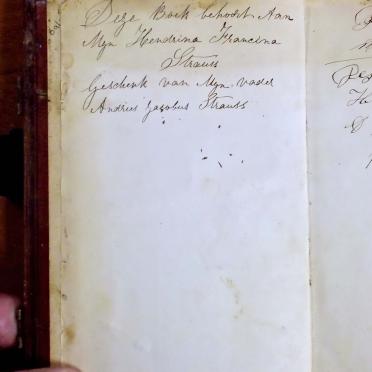 Deze Boek behoort Aan
Myn Hendrina Francina
Strauss
Geschenk van Myn vader
Andries Jacobus Strauss